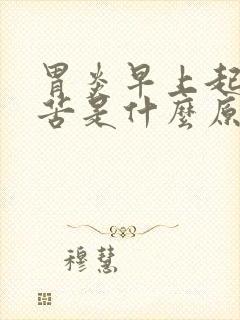 胃炎早上起
苦是什麼原
穆慧